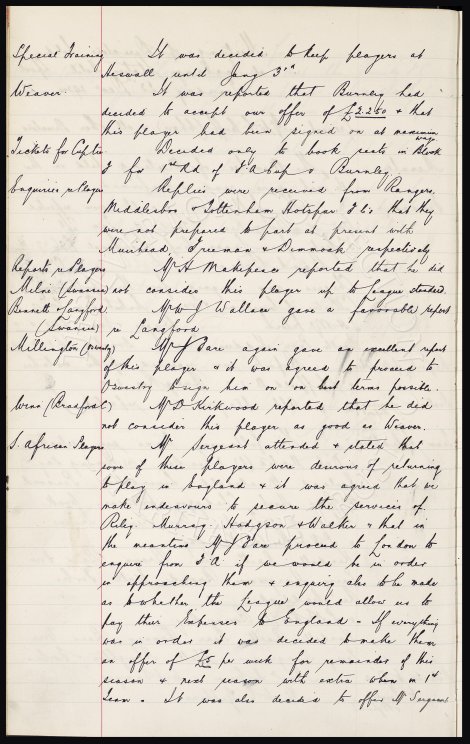 Special Training It was decided to keep players at
Heswall until Jany 3rd
Weaver. It was reported that Burnley had
decided to accept our offer of £2250 & that
this player had been signed on at maximum
wage
Tickets for Cup tie Decided only to book seats in Block
J for 1st Rd of F A Cup v Burnley
Enquiries re Players Replies were received from Rangers
Middlesbro & Tottenham Hotspur F C's that they
were not prepared to part at present with
Muirhead, Freeman & Dimmock respectively
Reports re Players Mr H Makepeace reported that he did
Milne (Swansea) not consider this player up to League standard.
Bennett & Langford Mr W J Wallace gave a favorable report
(Swansea) re Langford
Millington (Oswestry) Mr J Dare again gave an excellent report
of this player & it was agreed to proceed to
Oswestry & sign him on on best terms possible.
Wens (Bradford) Mr D Kirkwood reported that he did
not consider this player as good as Weaver.
S. African Players Mr Sergeant attended & stated that
some of these players were desirous of returning
to play in England & it was agreed that we
make endeavours to secure the services of
Riley Murray. Hodgson & Walker & that in
the meantime Mr J Dare proceed to London to
enquire from F A if we would be in order
in approaching them & enquiry also to be made
as to whether the League would allow us to
pay their expenses to England. If everything
was in order it was decided to make them
an offer of £5 per week for remainder of this
season & next season with extra when in 1st
Team. It was also decided to offer Mr Sergeant